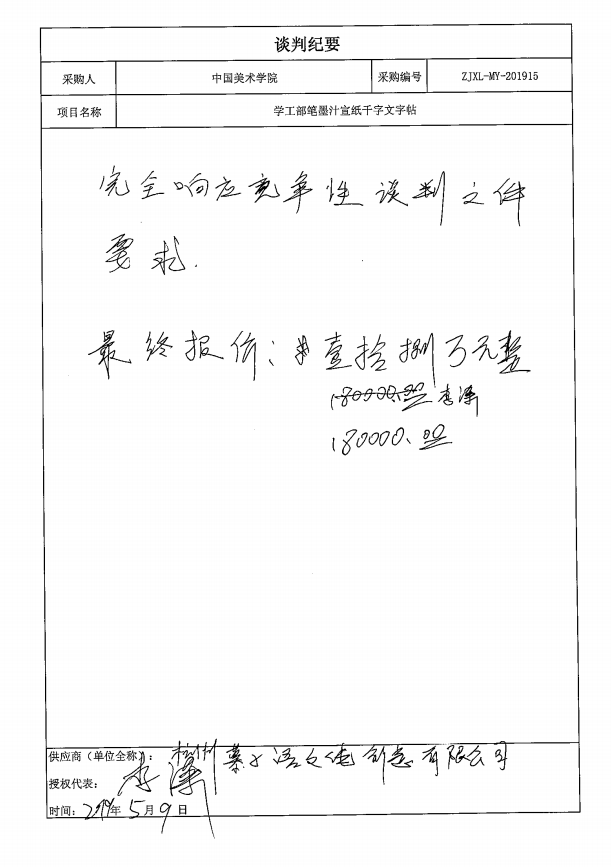 谈判纪要
采购人 中国美术学院 采购编号 ZJXL-MY-201915
项目名称 学工部笔墨汁宣纸千字文字帖
完全响应竞争性谈判文件
要求.
最终报价: 壹拾捌万元整
180000.00 李泽
180000.00
供应商（单位全称）： 杭州 文化创意有限公司
授权代表： 李泽
时间： 2019年5月9日